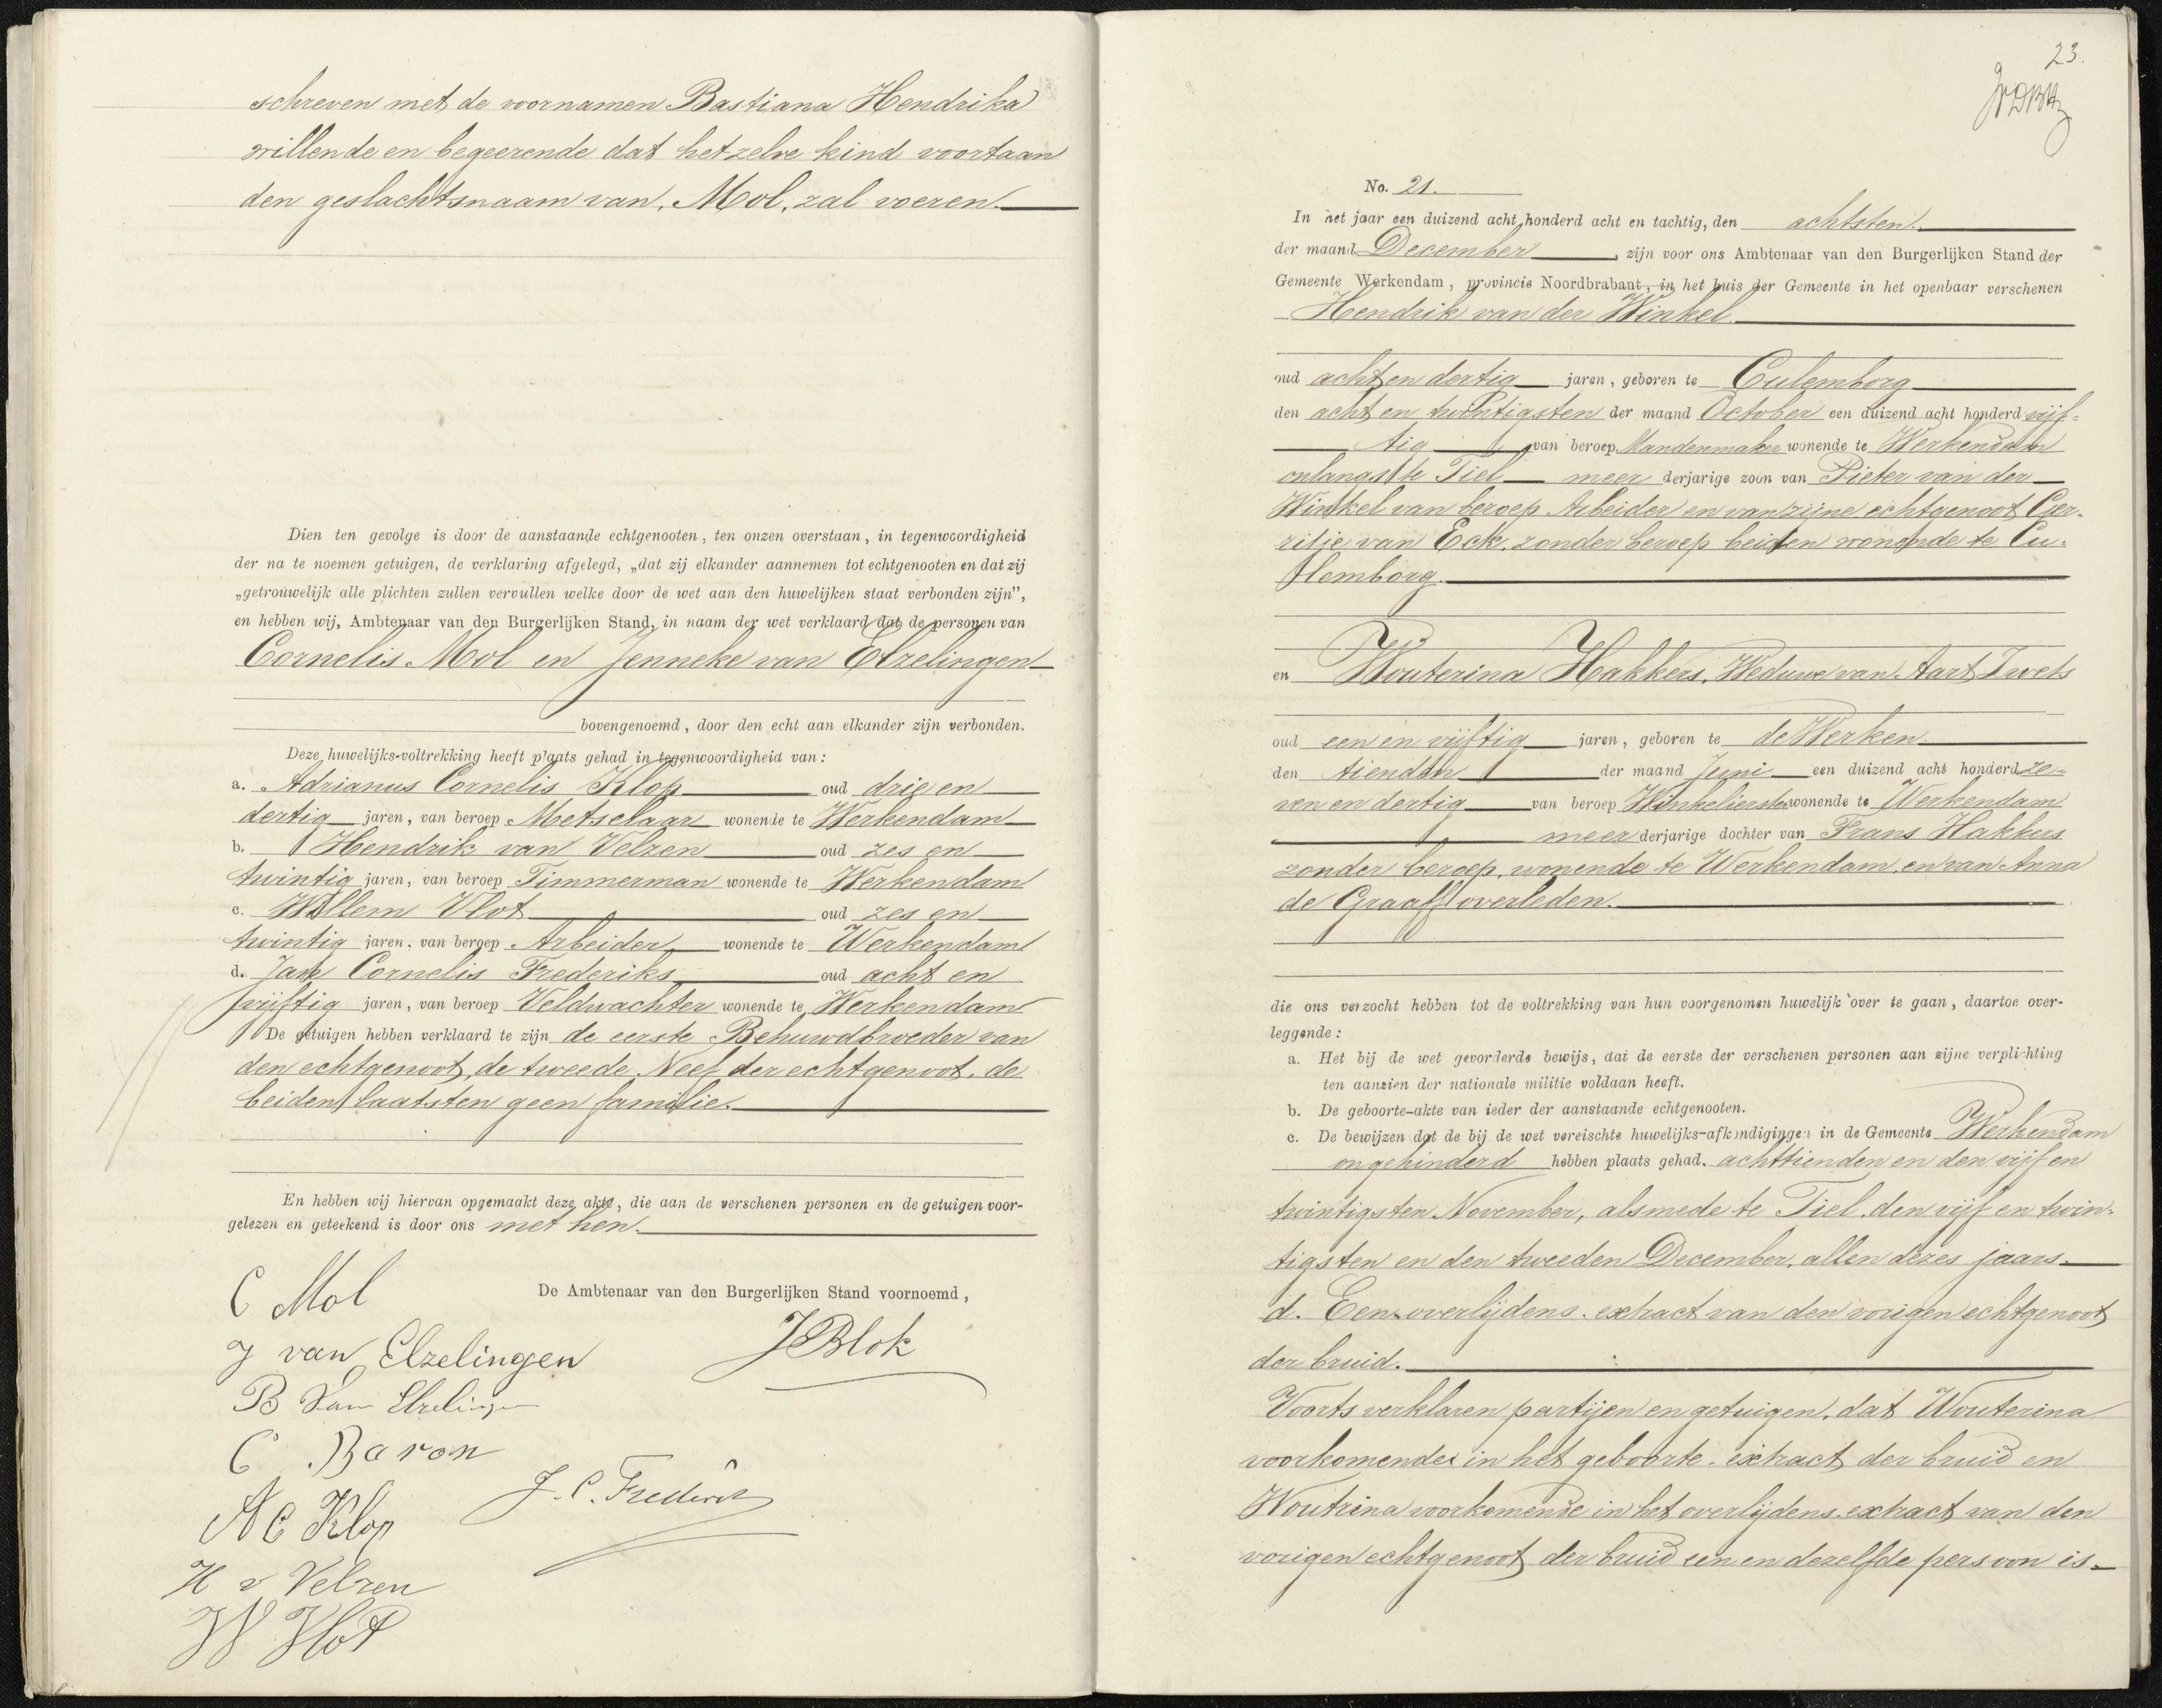 schreven met de voornamen Bastiana Hendrika
willende en begeerende dat hetzelve kind voortaan
den geslachtsnaam van, Mol, zal voeren.
Dien ten gevolge is door de aanstaande echtgenooten, ten onzen overstaan, in tegenwoordigheid
der na te noemen getuigen, de verklaring afgelegd, „dat zij elkander aannemen tot echtgenooten en dat zij
„getrouwelijk alle plichten zullen vervullen welke door de wet aan den huwelijken staat verbonden zijn”,
en hebben wij, Ambtenaar van den Burgerlijken Stand, in naam der wet verklaard dat de personen van
Cornelis Mol en Jenneke van Elzelingen
bovengenoemd, door den echt aan elkander zijn verbonden.
Deze huwelijks-voltrekking heeft plaats gehad in tegenwoordigheid van:
a. Adrianus Cornelis Klop oud drie en
dertig jaren, van beroep Metselaar wonende te Werkendam
b. Hendrik van Velzen oud zes en
twintig jaren, van beroep Timmerman wonende te Werkendam
c. Willem Vlot oud zes en
twintig jaren, van beroep Arbeider wonende te Werkendam
d. Jan Cornelis Frederiks oud acht en
vijftig jaren, van beroep Veldwachter wonende te Werkendam
De getuigen hebben verklaard te zijn de eerste Behuwdbroeder van
den echtgenoot, de tweede Neef der echtgenoot, de
beiden laatsten geen familie.
En hebben wij hiervan opgemaakt deze akte, die aan de verschenen personen en de getuigen voor-
gelezen en geteekend is door ons met hen.
De Ambtenaar van den Burgerlijken Stand voornoemd,
C Mol
J Blok
J van Elzelingen
B van Elzelingen
C. Baron
J. C. Frederiks
A C Klop
H v Velzen
W Vlot
23.
No. 21.
In het jaar een duizend acht honderd acht en tachtig, den achtsten
der maand December, zijn voor ons Ambtenaar van den Burgerlijken Stand der
Gemeente Werkendam, provincie Noordbrabant, in het huis der Gemeente in het openbaar verschenen
Hendrik van der Winkel
oud acht en dertig jaren, geboren te Culemborg
den acht en twintigsten der maand October een duizend acht honderd vijf=
tig van beroep Mandenmaker wonende te Werkendam
onlangs te Tiel meer derjarige zoon van Pieter van der
Winkel van beroep Arbeider en van zijne echtgenoot Ger-
ritje van Eck, zonder beroep beiden wonende te Cu-
lemborg.
en Wouterina Hakkers, Weduwe van Aart Swets
oud een en vijftig jaren, geboren te de Werken
den tienden der maand Juni een duizend acht honderd ze-
ven en dertig van beroep Winkelierster wonende te Werkendam
meer derjarige dochter van Frans Hakkers
zonder beroep, wonende te Werkendam, en van Anna
de Graaff overleden.
die ons verzocht hebben tot de voltrekking van hun voorgenomen huwelijk over te gaan, daartoe over-
leggende:
a. Het bij de wet gevorderde bewijs, dat de eerste der verschenen personen aan zijne verplichting
ten aanzien der nationale militie voldaan heeft.
b. De geboorte-akte van ieder der aanstaande echtgenooten.
c. De bewijzen dat de bij de wet vereischte huwelijks-afkondigingen in de Gemeente Werkendam
ongehinderd hebben plaats gehad. achttienden en den vijf en
twintigsten November, alsmede te Tiel, den vijf en twin-
tigsten en den tweeden December, allen dezes jaars.
d. Een overlijdens-extract van den vorigen echtgenoot
der bruid.
Voorts verklaren partijen en getuigen, dat Wouterina
voorkomende in het geboorte-extract der bruid en
Woutrina voorkomende in het overlijdens-extract van den
vorigen echtgenoot der bruid een en dezelfde persoon is.